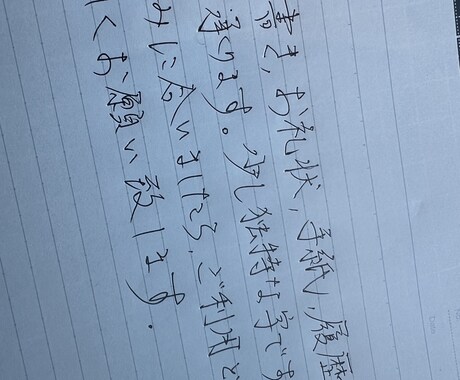 書き,お礼状,手紙,履歴
ります。少し独特な字です
みに合いましたら,ご利用
くお願い致します.